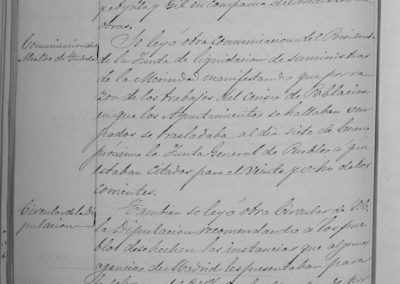 y Gil en compañia del
obras.
Comunicacion del
Alcalde de Tudela
Se leyó otra Comunicacion del Presidente
de la Junta de liquidacion de Suministros
de la Merindad manifestando que por ra
zon de los trabajos del censo de Poblacion
en que los Ayuntamientos se hallaban ocu
pados se trasladaba al dia siete de Enero
próximo la Junta General de Pueblos a que
estaban Citados para el Veinte y ocho de los
corrientes.
Circular de la Di
putacion
Tambien se leyó otra Circular de
la Diputacion recomendando a los pue
blos desechen las instancias que algunas
agencias de Madrid les presentaban para